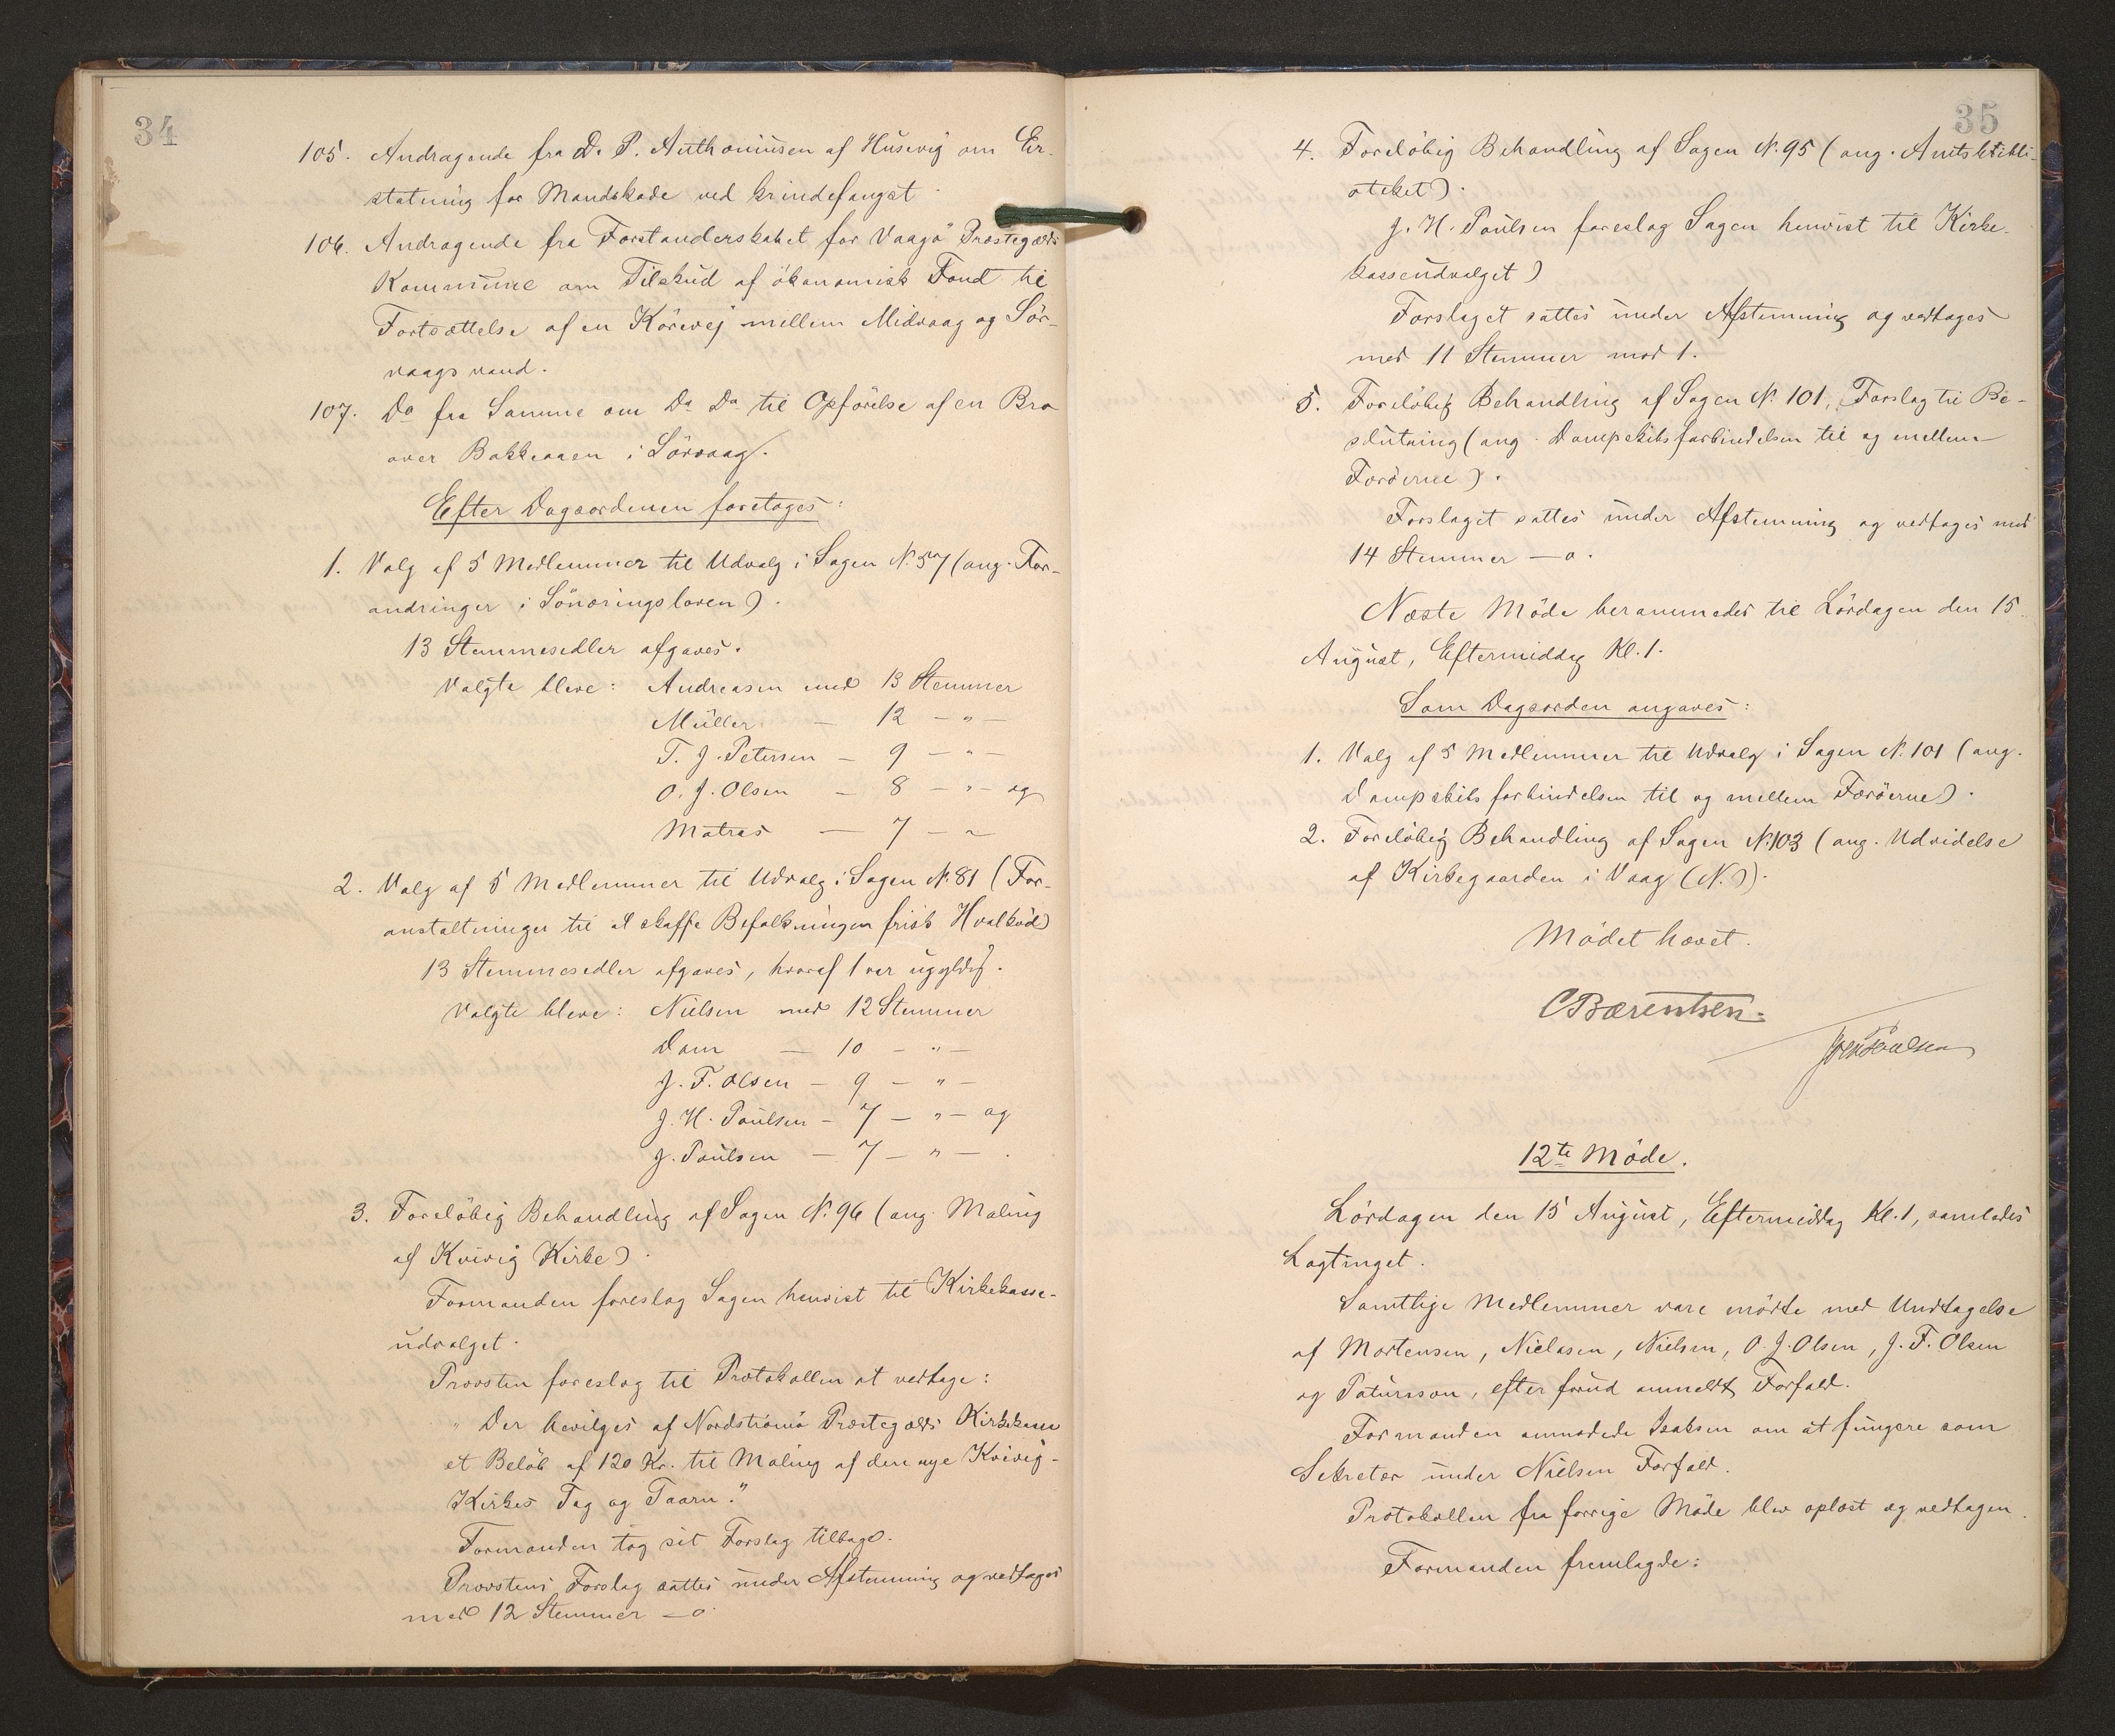 34
105. Andragende fra D. P. Anthoniusen af Husevig om Er-
statning for Mandskade ved Grindefangst.
106. Andragende fra Forstanderskabet for Vaagö Præstegælds
Kommune om Tilskud af ökonomisk Fond til
Fortsættelse af en Körevej mellem Midvaag og Sör-
vaagsvand.
107. Do fra Samme om Do Do til Opförelse af en Bro
over Bakkeaaen i Sörvaag.
Efter Dagsordenen foretoges:
1. Valg af 5 Medlemmer til Udvalg i Sagen N. 57 (ang. For-
andringer i Sönæringsloven).
13 Stemmesedler afgaves.
Valgte bleve: Andreasen med 13 Stemmer
Müller — 12 — " —
T. J. Petersen — 9 — " —
O. J. Olsen — 8 — " — og
Matras — 7 — "
2. Valg af 5 Medlemmer til Udvalg i Sagen N. 81 (For-
anstaltninger til at skaffe Befolkningen frisk Hvalköd)
13 Stemmesedler afgaves, hvoraf 1 var ugyldig.
Valgte bleve: Nielsen med 12 Stemmer
Dam — 10 — " —
J. F. Olsen — 9 — " —
J. H. Poulsen — 7 — " — og
J. Poulsen — 7 — " — .
3. Foreløbig Behandling af Sagen N. 96 (ang. Maling
af Kvivig Kirke).
Formanden foreslog Sagen henvist til Kirkekasse-
udvalget.
Provsten foreslog til Protokollen at vedtage:
"Der bevilges af Nordströmö Præstegælds Kirkekasse
et Belöb af 120 Kr. til Maling af den nye Kvivig-
Kirkes Tag og Taarn."
Formanden tog sit Forslag tilbage.
Provstens Forslag sattes under Afstemning og vedtoges
med 12 Stemmer — o.
35
4. Foreløbig Behandling af Sagen N. 95 (ang. Amtsbibli-
oteket).
J. H. Poulsen foreslog Sagen henvist til Kirke-
kasseudvalget)
Forslaget sattes under Afstemning og vedtoges
med 11 Stemmer mod 1.
5. Foreløbig Behandling af Sagen N. 101, Forslag til Be-
slutning (ang. Dampskibsforbindelsen til og mellem
Færöerne).
Forslaget sattes under Afstemning og vedtoges med
14 Stemmer — o.
Næste Möde berammedes til Lördagen den 15
August, Eftermiddag Kl. 1.
Som Dagsorden angaves:
1. Valg af 5 Medlemmer til Udvalg i Sagen N. 101 (ang.
Dampskibsforbindelsen til og mellem Færöerne).
2. Foreløbig Behandling af Sagen N. 103 (ang. Udvidelse
af Kirkegaarden i Vaag (N.)).
Mödet hævet.
C Bærentsen.
Poulsen
12te Möde.
Lördagen den 15 August, Eftermiddag Kl. 1, samledes
Lagtinget.
Samtlige Medlemmer vare mödte med Undtagelse
af Mortensen, Niclasen, Nielsen, O. J. Olsen, J. F. Olsen
og Patursson, efter forud anmeldt Forfald.
Formanden anmodede Isaksen om at fungere som
Sekretær under Nielsen Forfald.
Protokollen fra forrige Möde blev oplæst og vedtagen.
Formanden fremlagde: